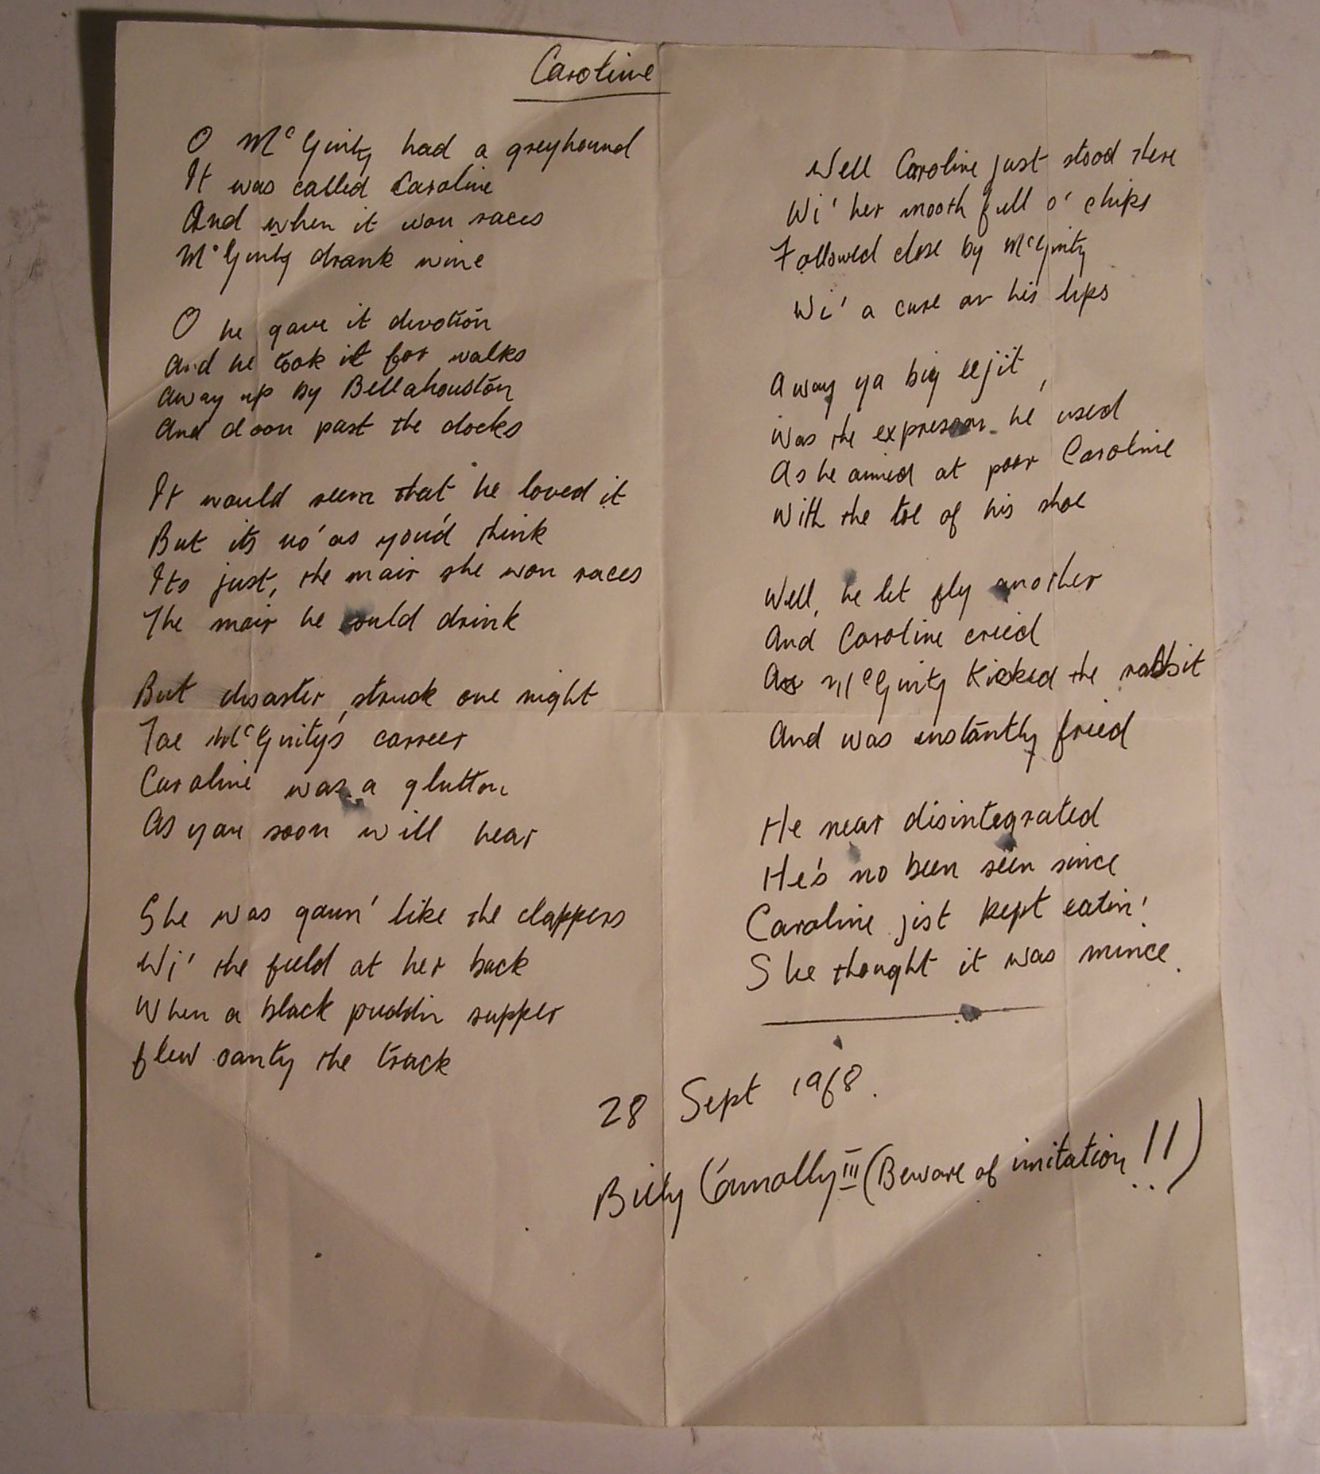 Caroline
O McGinty had a greyhound
It was called Caroline
And when it won races
McGinty drank wine
O he gave it devotion
And he took it for walks
Away up by Bellahouston
And doon past the docks
It would seem that he loved it
But its no' as you'd think
Its just, the mair she won races
The mair he could drink
But disaster struck one night
Tae McGinty's carreer
Caroline was a glutton
As you soon will hear
She was gaun' like the clappers
Wi' the field at her back
When a black puddin supper
flew oanty the track
Well Caroline just stood there
Wi' her mooth full o' chips
Followed close by McGinty
Wi' a curse on his lips
Away ya big eejit,
Was the expression he used
As he aimed at poor Caroline
With the toe of his shoe
Well, he let fly another
And Caroline cried
As McGinty kicked the rabbit
And was instantly fried
He near disintegrated
He's no been seen since
Caroline jist kept eatin'
She thought it was mince.
28 Sept 1968.
Billy Connolly III (Beware of imitation!!)